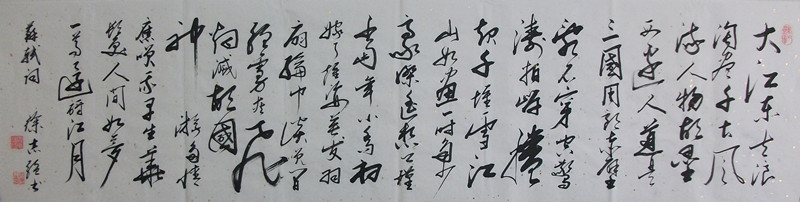 大江东去浪
淘尽千古风
流人物故垒
西边人道是
三国周郎赤壁
乱石穿空惊
涛拍岸卷
起千堆雪江
山如画一时多少
豪杰遥想公瑾
当年小乔初
嫁了雄姿英发羽
扇纶巾谈笑间
樯橹灰飞
烟灭故国
神游多情
应笑我早生华
发人间如梦
一尊还酹江月
苏轼词